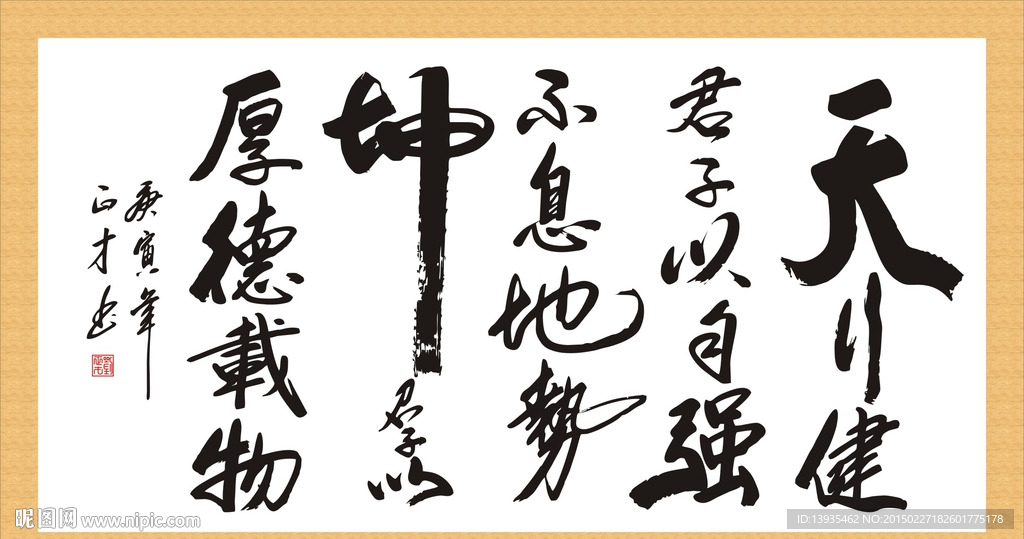 天行健
君子以自强
不息地勢
坤君子以
厚德載物
庚寅年
正才书
昵图网 www.nipic.com
ID:13935462 NO:20150227182601775178